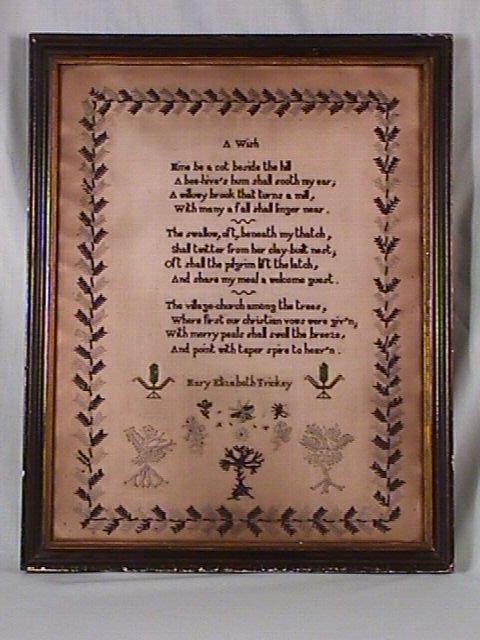 A Wish
Mine be a cot beside the hill
A bee-hive's hum shall sooth my ear;
A willowy brook that turns a mill,
With many a fall shall linger near.
The swallow, oft, beneath my thatch,
Shall twitter from her clay-built nest;
Oft shall the pilgrim lift the latch,
And share my meal a welcome guest.
The village-church among the trees,
Where first our christian vows were giv'n,
With merry peals shall swell the breeze,
And point with taper spire to heav'n.
Mary Elizabeth Trickey